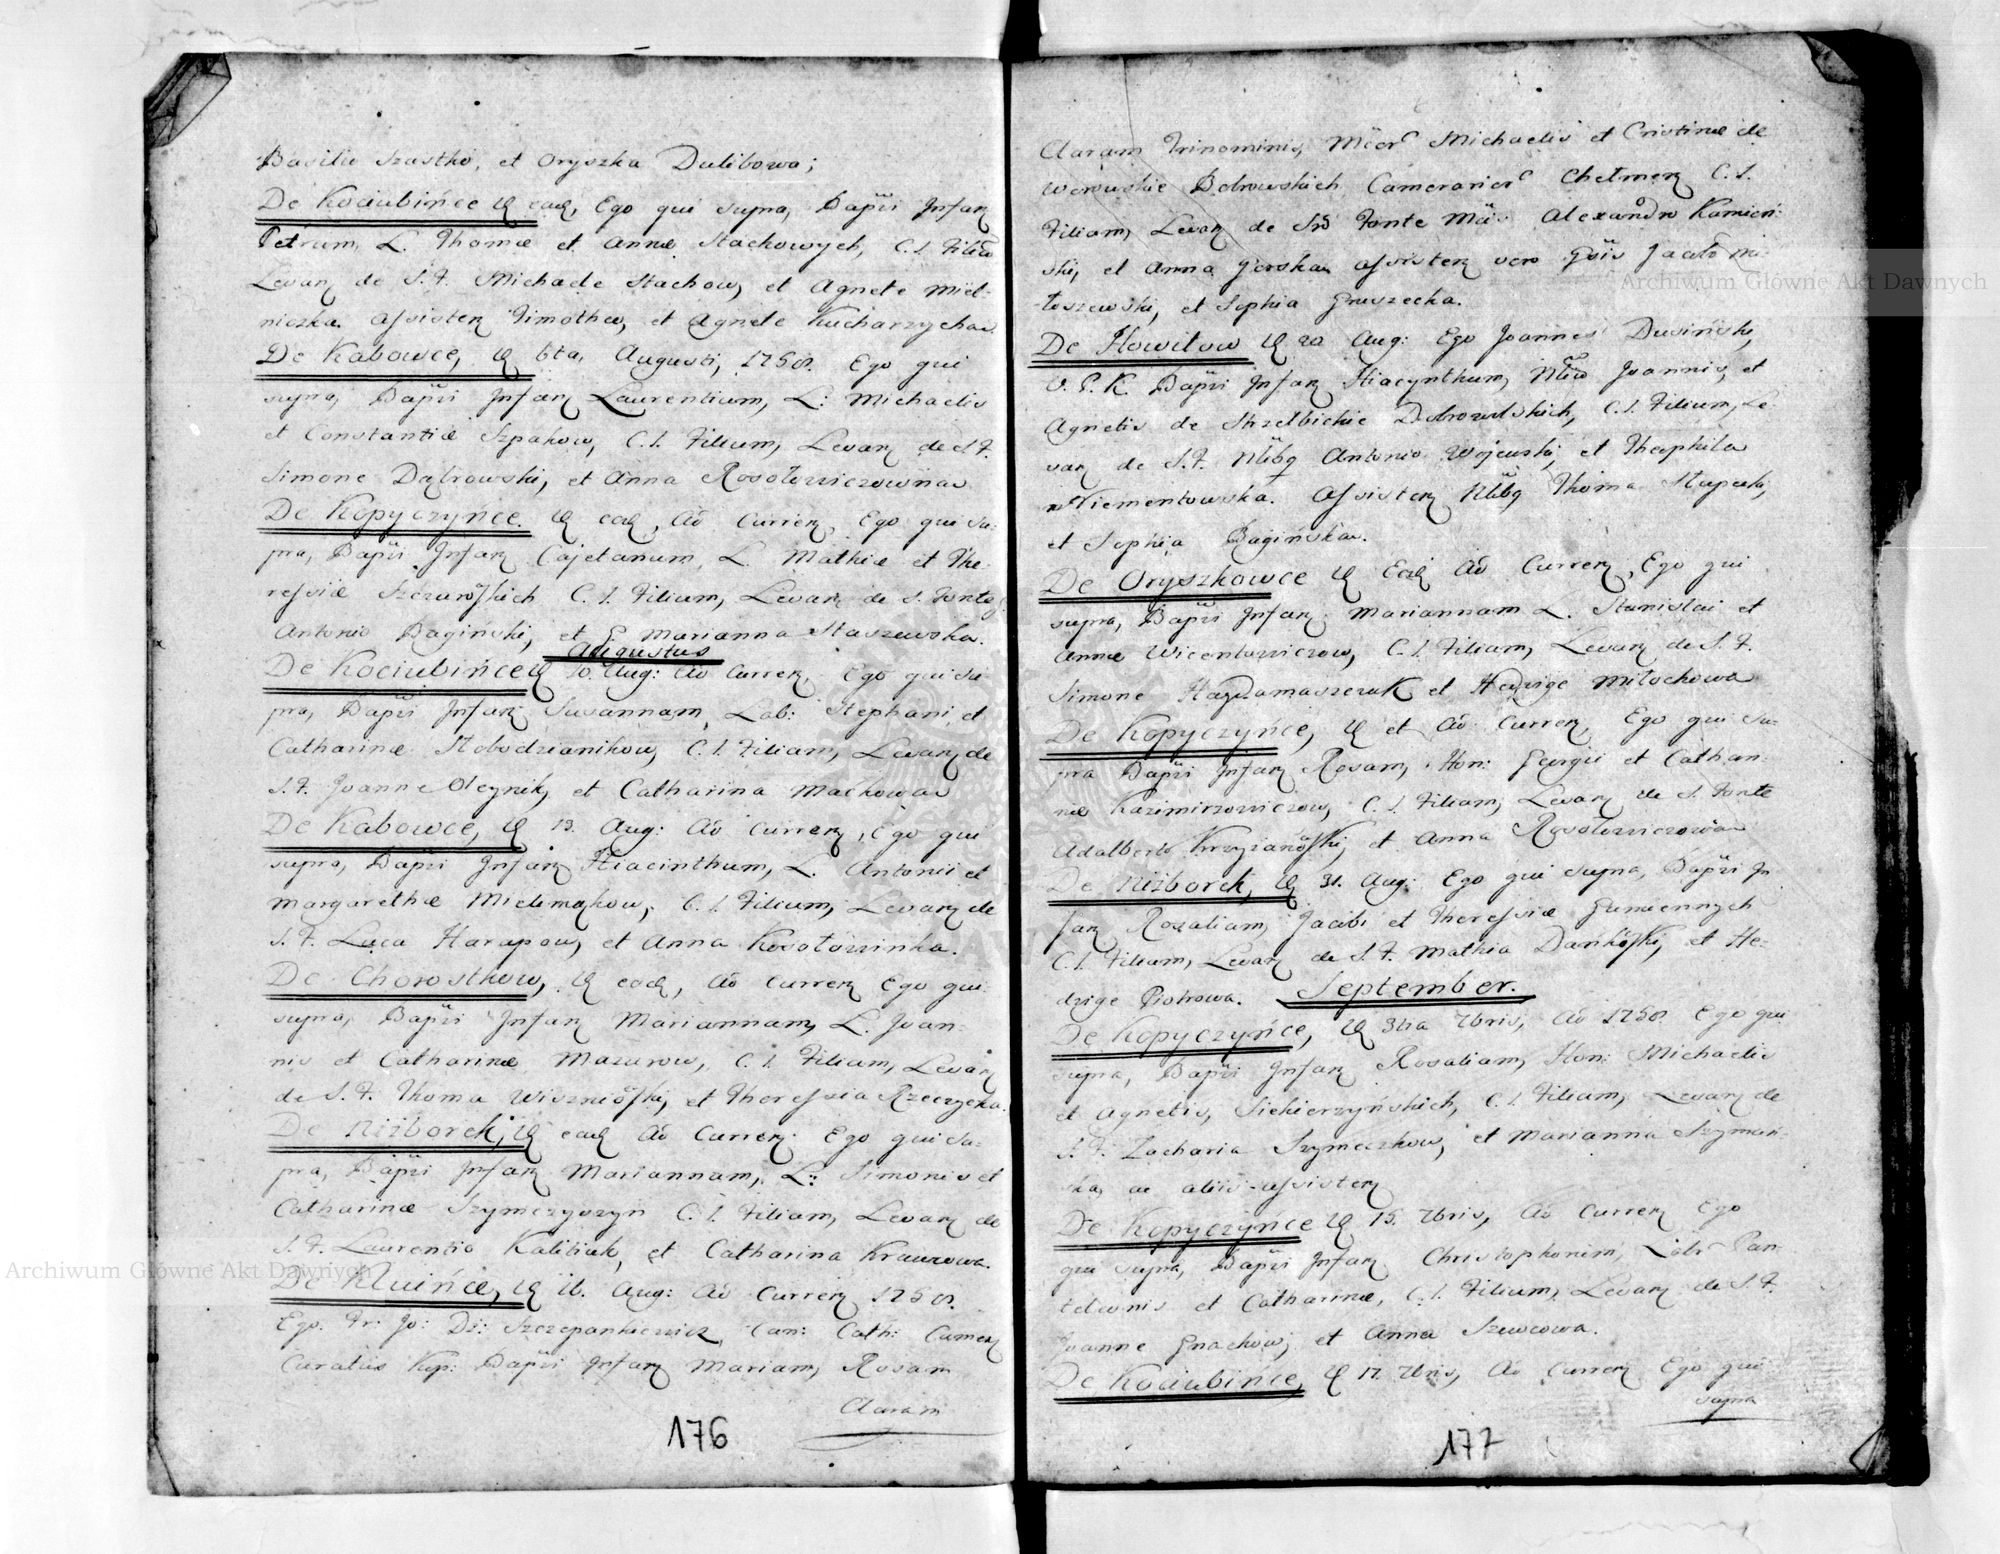 Basilio Szastko, et Oryszka Dulibowa;
De Kociubińce ead, Ego qui supra, Bapti Infan
Petrum, L. Thomæ et Annæ Stachowych, C.L. Filiū
Levan de S.F. Michaele Stachow, et Agnete Miel-
niczka. Assisten Timotheo, et Agnete Kucharzycha
De Kabowce, 6ta Augusti, 1758. Ego qui
supra, Bapti Infan Laurentium, L: Michaelis
et Constantiæ Szpakow, C.L. Filium, Levan de S.F.
Simone Dąbrowski, et Anna Rosołowiczowna
De Kopyczyńce. ead, Aō Curren, Ego qui su-
pra, Bapti Infan Cajetanum, L. Mathiæ et The-
ressiæ Szczurofskich C.L. Filium, Levan de S. Fonte
Antonio Bagiński, et G. Marianna Staszewska.
Augustus
De Kociubińce 10. Aug: Aō Curren, Ego qui su
pra, Bapti Infan Susannam, Lab: Stephani, et
Catharinæ Słobodzianikow, C.L. Filiam, Levan de
S.F. Joanne Oleynik, et Catharina Mackowa
De Kabowce, 13. Aug: Aō Curren, Ego qui
supra, Bapti Infan Hiacinthum, L. Antonii et
Margarethæ C.L. Filium, Levan de
S.F. Luca Harapow, et Anna
De Chorostkow, ead, Aō Curren Ego qui
supra, Bapti Infan Mariannam, L. Joan-
nis et Catharinæ Mazurow, C.L. Filiam, Levan
de S.F. Thoma Wiszniofski, et Theressia Rzeczycka.
De Niżborek, ead Aō Curren: Ego qui su-
pra, Bapti Infan Mariannam, L: Simonis et
Catharinæ Szymczyszyn C.L. Filiam, Levan de
S.F. Laurentio Kalitiuk, et Catharina Krauzowa.
De 16. Aug: Aō Curren 1758.
Ego. Fr: Jo: Szczepankiewicz, Can: Cath: Camen
Curatus Kop: Bapti Infan Mariam, Rosam
Claram
176
Claram Trinominis, Michaelis et Cristinæ de
Bobrowskich Chełmen C.L.
Filiam, Levan de Fonte Alexandro Kamień-
ski, et Anna Gorska assisten vero Jacobo Mi-
łoszewski, et Sophia Gruszecka.
De Howiłow 20 Aug: Ego Joannes Dusiński,
V.P.K. Bapti Infan Hiacynthum, Joannis, et
Agnetis de Strzelbickie Dobrowolskich, C.L. Filium, Le-
van de S.F. Antonio Wojewski, et Theophila
Klementowska. Assisten Thoma
et Sophia Bagińska.
De Oryszkowce Ead Aō Curren, Ego qui
supra, Bapti Infan Mariannam L. Stanislai et
Annæ Wicentowiczow, C.L. Filiam, Levan de S.F.
Simone Haydamaszczuk et Hedvige Miłochowa
De Kopyczyńce, et Aō Curren, Ego qui su-
pra Bapti Infan Rosam, Hon: Georgii et Cathari-
næ Kazimirowiczow, C.L. Filiam, Levan de S. Fonte
Adalberto Krzyżanofski, et Anna Rosołowiczowa
De Niżborek, 31. Aug: Ego qui supra, Bapti In-
fan Rosaliam Jacobi et Theressiæ Gumiennych
C.L. Filiam, Levan de S.F. Mathia Dańkofski, et He-
dvige Piotrowa. September.
De Kopyczyńce, 3tia 7bris, Aō 1758 Ego qui
supra, Bapti Infan Rosaliam, Hon: Michaelis
et Agnetis, Siekierzyńskich, C.L. Filiam, Levan de
S.F. Zacharia Szymeczkow, et Marianna Szymań-
ska, ac aliis assisten
De Kopyczyńce 15. 7bris, Aō Curren Ego
qui supra, Bapti Infan Christophorum, Lab: Pan-
teleonis et Catharinæ, C.L. Filium, Levan de S.F.
Joanne Gnachow, et Anna Szewcowa.
De Kociubińce, 17. 7bris, Aō Curren Ego qui
supra
177
Archiwum Główne Akt Dawnych
Archiwum Główne Akt Dawnych